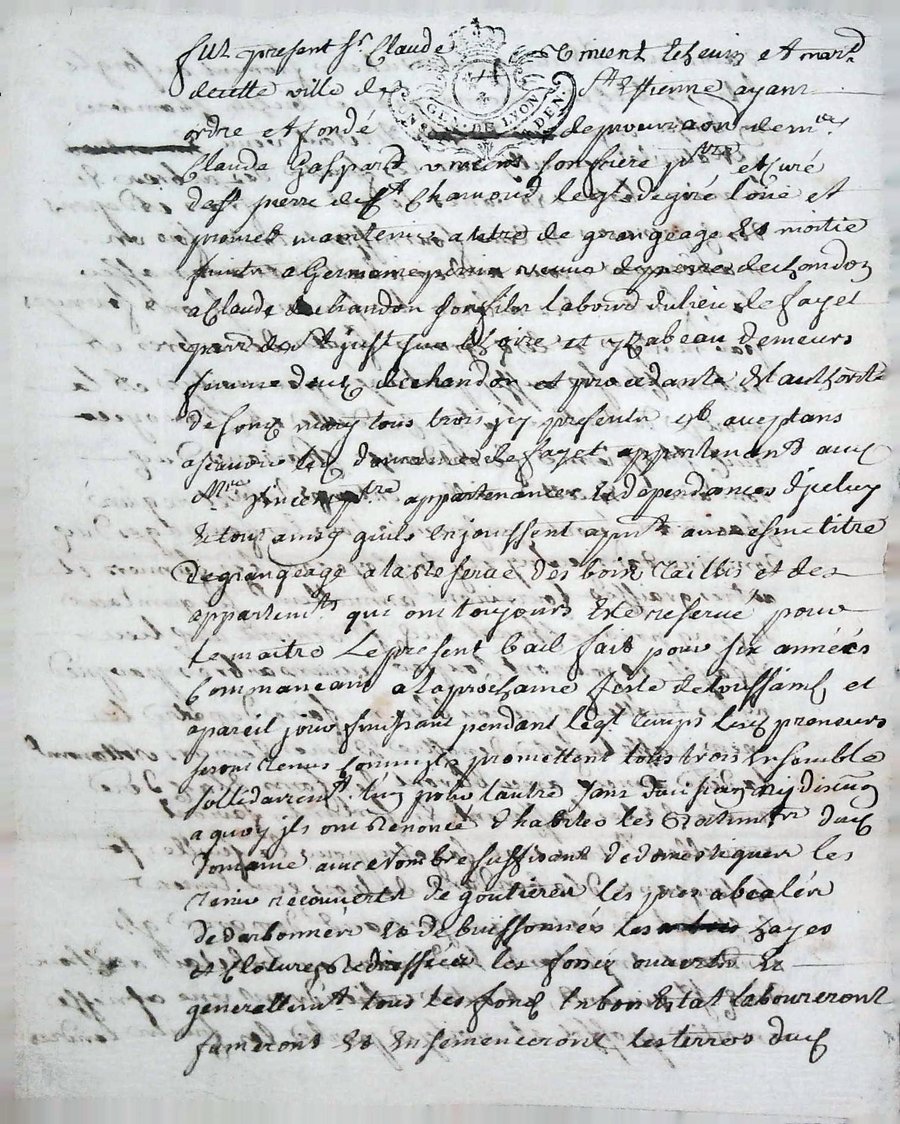 fut present Sr Claude Vincent Echevin et mard
de cette ville de St Estienne ayant
GEN. DE LYON
ordre et fondé de procuraon de mre
Claude Gaspard Vincent son frere ptre et curé
de St pierre de St Chamond leql de gré loüe et
promet maintenir a titre de grangeage et moitié
fruits a Germaine perrin veuve de pierre dechandon
a Claude dechandon son fils labourd du lieu de fayet
parr de St just sur Loire et yzabeau demeurs
femme dud dechandon et procedante de l'authorité
de sond mary tous trois icy presents et acceptans
a scavoir led domaine de fayet appartenant aud
Mre Vincent ptre appartenances et dependances d'iceluy
et tout ainsy quils en joüissent a pnt au mesme titre
de grangeage a la reserve des bois taillis et des
appartemts qui ont toujours été reservé pour
le maitre Le present bail fait pour six années
Commancant a la prochaine feste de toussaints et
a pareil jour finissant pendant leql temps lesd preneurs
seront tenus comm'ils promettent tous trois ensemble
sollidairemt l'un pour l'autre sans division ny discuon
a quoy ils ont renoncé d'habiter les batimts dud
domaine avec nombre suffisant de domestiques les
tenir recouverts de goutieres les prés abealés
dedarbonnés et debuissonnés les hayes
et clotures redressées les fonds ouverts et
generallemt tous les fonds en bon Estat laboureront
fumeront et ensemenceront les terres dud